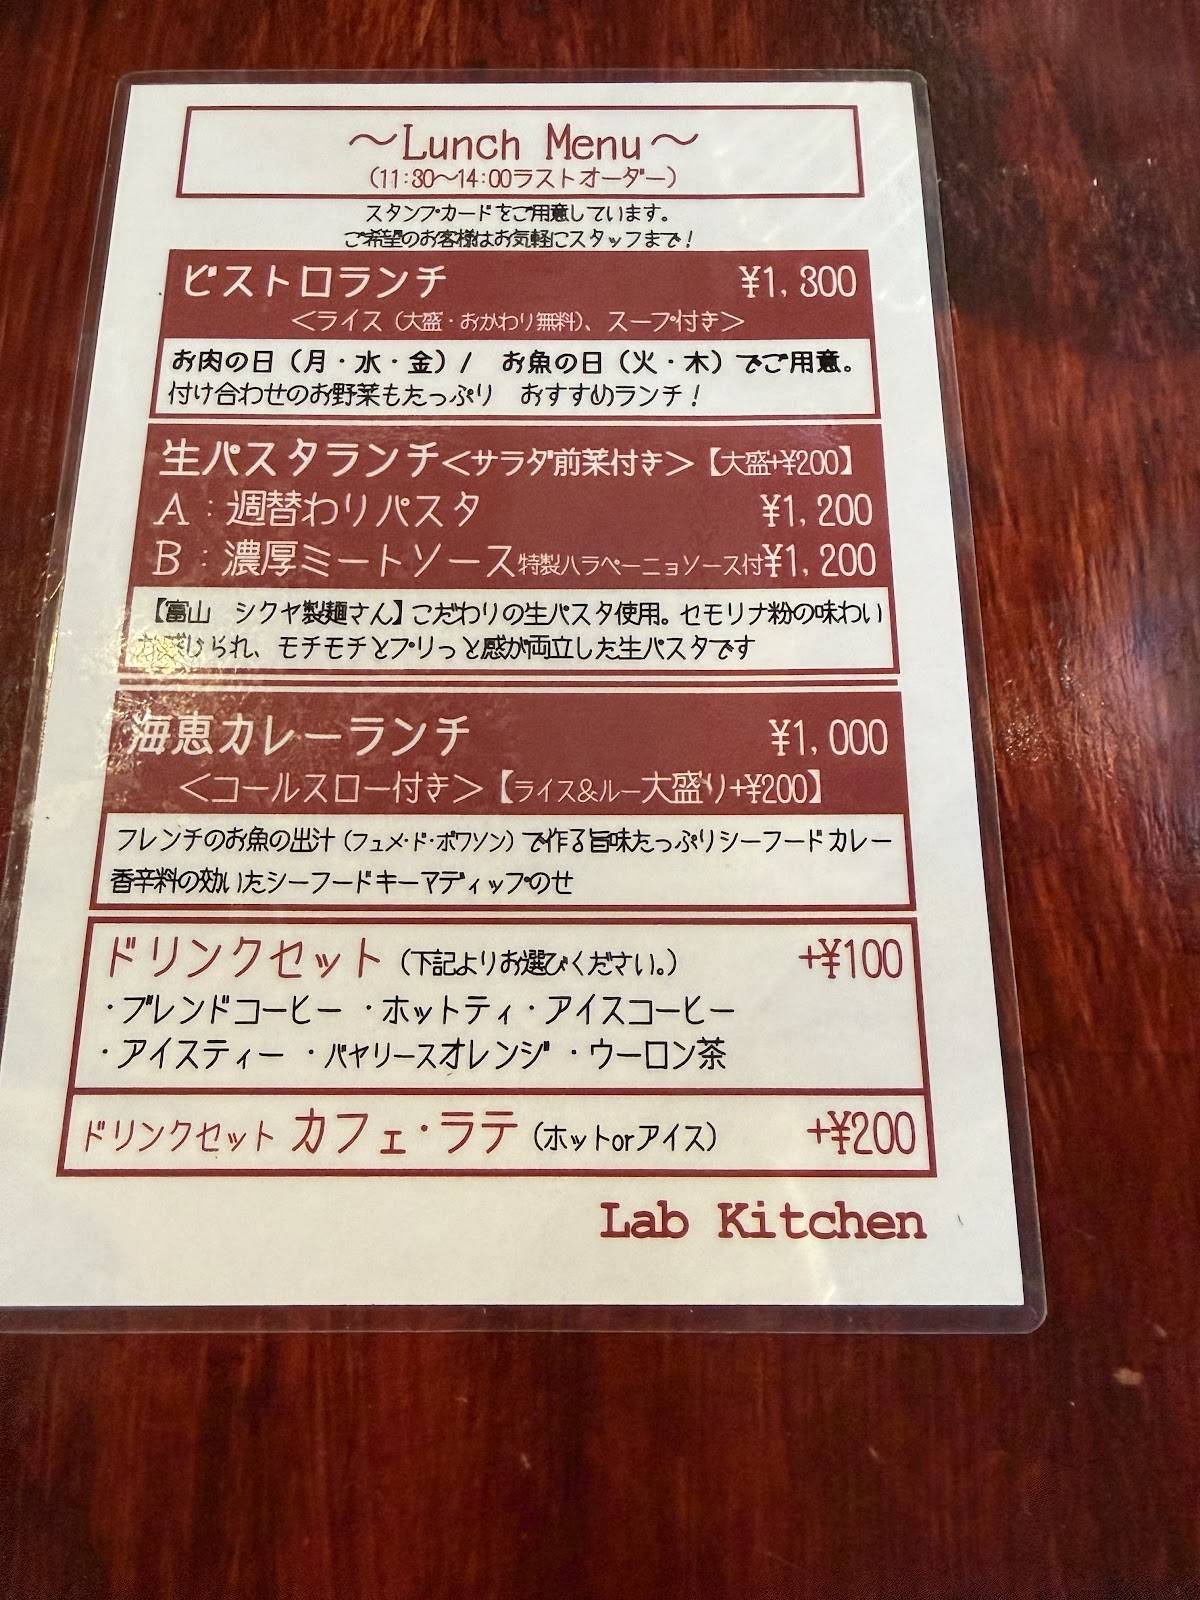 ～Lunch Menu～
（11:30～14:00ラストオーダー）
スタンプカードをご用意しています。
ご希望のお客様はお気軽にスタッフまで！
ビストロランチ ¥1,300
＜ライス（大盛・おかわり無料）、スープ付き＞
お肉の日（月・水・金）/ お魚の日（火・木）でご用意。
付け合わせのお野菜もたっぷり おすすめランチ！
生パスタランチ＜サラダ前菜付き＞【大盛+¥200】
A：週替わりパスタ ¥1,200
B：濃厚ミートソース特製ハラペーニョソース付¥1,200
【富山 シクヤ製麺さん】こだわりの生パスタ使用。セモリナ粉の味わい
が感じられ、モチモチとプリっと感が両立した生パスタです
海恵カレーランチ ¥1,000
＜コールスロー付き＞【ライス&ルー大盛り+¥200】
フレンチのお魚の出汁（フュメ・ド・ポワソン）で作る旨味たっぷりシーフードカレー
香辛料の効いたシーフードキーマディップのせ
ドリンクセット（下記よりお選びください。） +¥100
・ブレンドコーヒー ・ホットティ・アイスコーヒー
・アイスティー ・バヤリースオレンジ ・ウーロン茶
ドリンクセット カフェ・ラテ（ホットorアイス） +¥200
Lab Kitchen